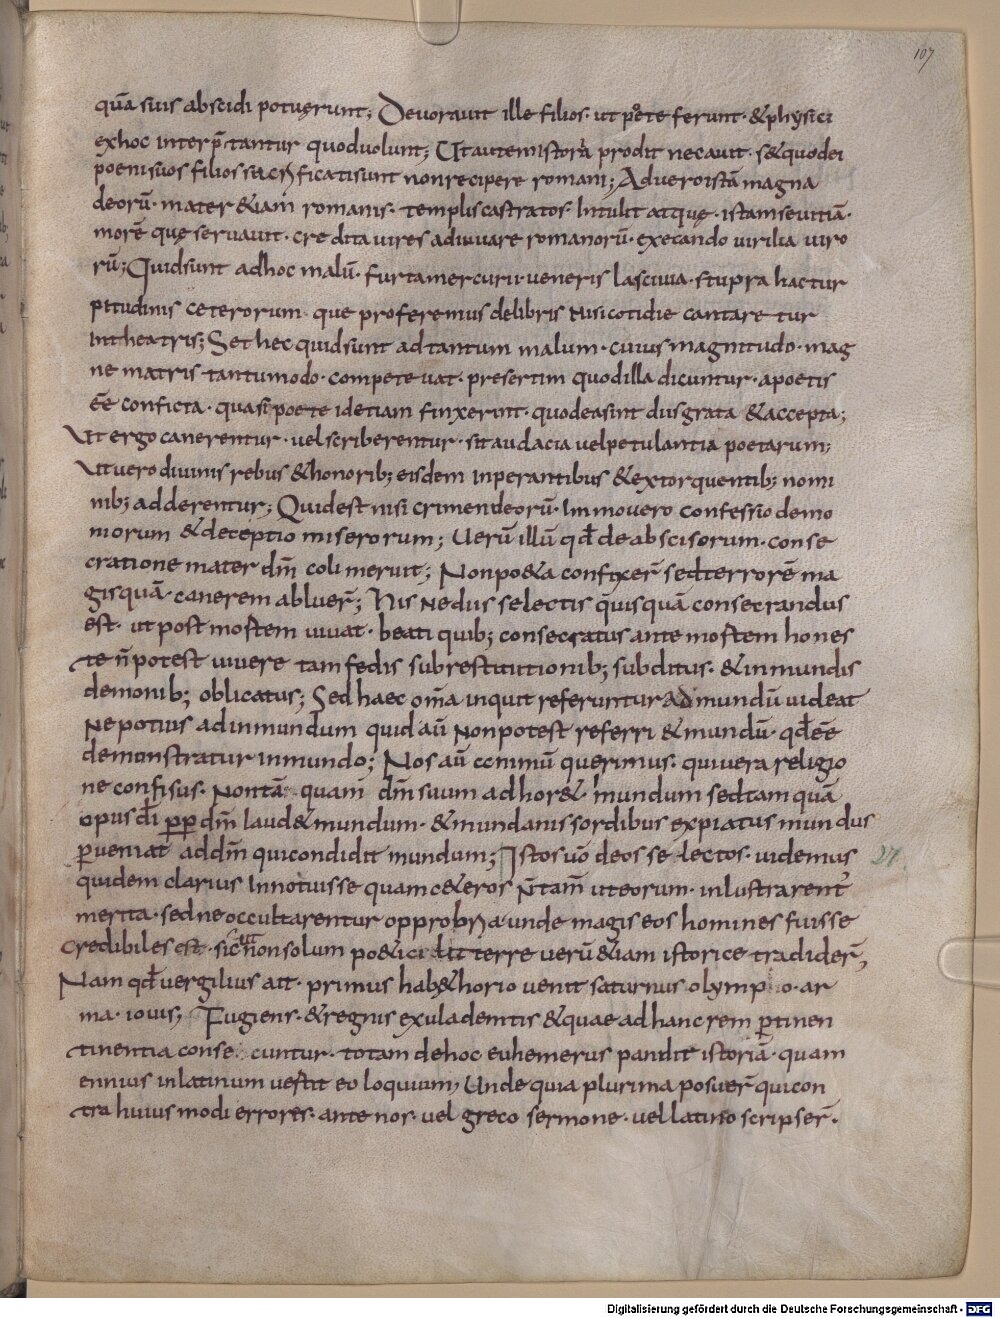 107
quā suis abscidi potuęrunt; Deuorauit ille filios · ut poete ferunt · & phỳsici
exhoc interp̄tantur quoduolunt; Ut autem istoria prodit necauit · s& quodei
poeni suos filios sacrificati sunt non recipere romani; Ad uero istā magna
deorū · mater &iam romanis · templis castratos · Intulit atquę · istam seuitiā ·
morē quę seruauit · credita uires adiuuare romanorū · execando uirilia uiro
rū; Quid sunt ad hoc malū · furta mercurii · ueneris lasciuia · stupra hac tur
pitudinis ceterorum que proferemus delibris nisi cotidie cantare tur
Intheatris; Set hec quid sunt ad tantum malum · cuius magnitudo · mag
ne matris tantumodo · compete uat · presertim quod illa dicuntur · apoetis
ēē conficta · quasi poete id etiam finxerint · quod ea sint diis grata & accepta;
Ut ergo canerentur · uel scriberentur · sit audacia uel petulantia poetarum;
Ut uero diuinis rebus & honorib; eisdem inperantibus & extorquentib; nomi
nib; adderentur; Quid est nisi crimen deorū · Immo uero confessio demo
niorum & deceptio miserorum; Uerū illū qđ de abscisorum · conse
cratione mater dm̄ coli meruit; Non po&a confixer̄ sed terrorē ma
gis quā · canerem abluer̄; His ne diis selectis quisquā consecrandus
est · ut post mortem uiuat · beati quib; consecratus ante mortem hones
te n̄ potest uiuere tam fedis subrestitutionib; subditus · & inmundis
demonib; oblicatus; Sed haec om̄a inquit referuntur ad mundū uideat
Ne potius ad inmundum quid aū non potest referri & mundū · qđ ēē
demonstratur inmundo; Nos aū ommū querimus · qui uera religio
ne confisus · Nontā quam dm̄ suum adhor& · mundum sed tam quā
opus dī pp dm̄ laud& mundum · & mundanis sordibus expiatus mundus
pueniat ad dm̄ qui condidit mundum; Istos uō deos selectos · uidemus 27
quidem clarius Innotuisse quam c&eros N̄ tam̄ ut eorum · inlustrarent̄
merita · sed ne occultarentur opprobria · unde magis eos homines fuisse
credibiles est · sicut non solum po&ici litterre uerū &iam istorice tradider̄,
Nam qđ uergilius ait · primus hab& horio uenit saturnus olympo · ar
ma · iouis; Fugiens · & regnis exul ademtis & quae ad hanc rem ptinen
tinentia conse cuntur · totam de hoc euhemerus pandit istoriā · quam
ennius in latinum uestit eoloquium, Unde quia plurima posuer̄ qui con
tra huius modi errores · ante nos · uel greco sermone · uel latino scripser̄ ·
Digitalisierung gefördert durch die Deutsche Forschungsgemeinschaft - DFG